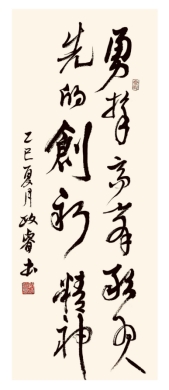 勇攀高峰敢为人
先的創新精神
乙巳夏月政睿书